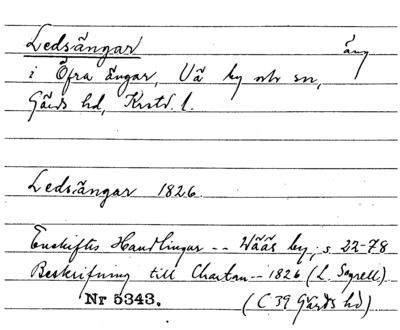 Ledsängar äng
i Öfra ängar, Vä by och sn,
Gärds hd, Krstd. l.
Ledsängar 1826.
Enskiftes Handlingar -- Wääs by; s 22-78
Beskrifning till Chartan -- 1826 (L. Sagrell)
Nr 5343. (C 39 Gärds hd)